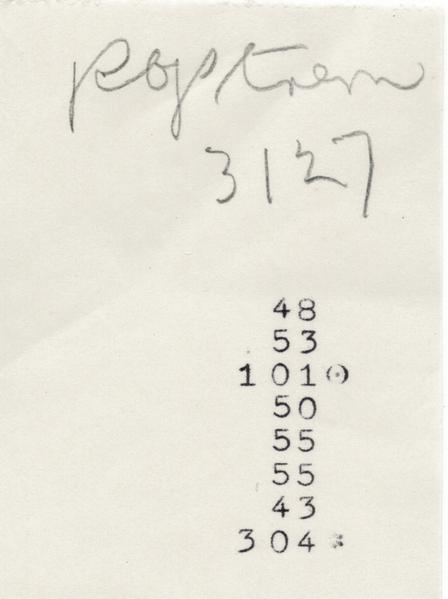 3127
48
53
101⊙
50
55
55
43
304 *